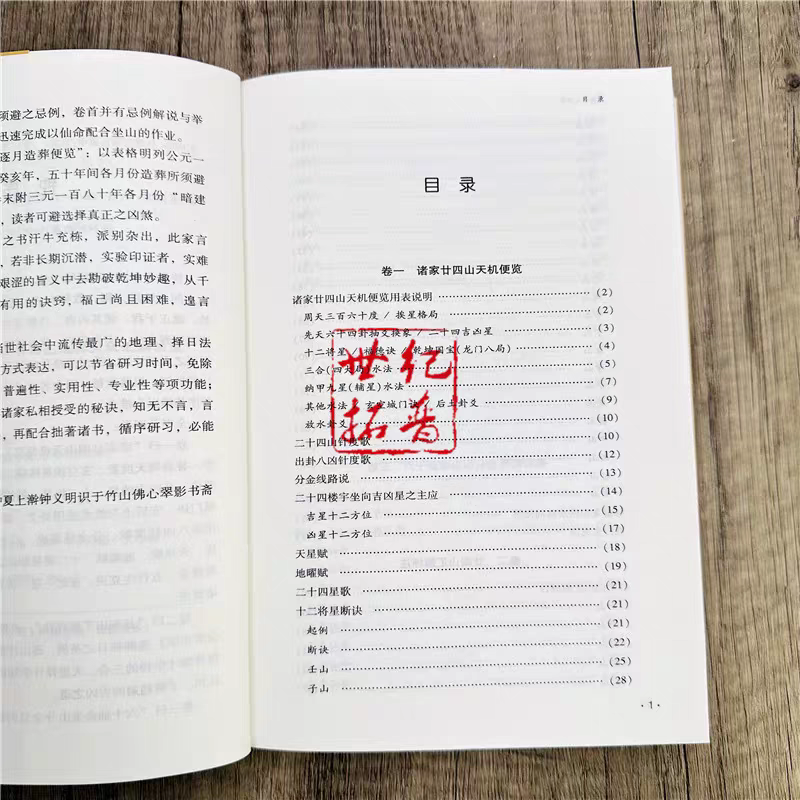 须避之忌例，卷首并有忌例解说与举
迅速完成以仙命配合坐山的作业。
逐月造葬便览”：以表格明列公元一
癸亥年，五十年间各月份造葬所须避
末附三元一百八十年各月份“暗建
，读者可避选择真正之凶煞。
之书汗牛充栋，派别杂出，此家言
，若非长期沉潜，实验印证者，实难
艰涩的旨义中去勘破乾坤妙趣，从千
有用的诀窍，福己尚且困难，遑言
当世社会中流传最广的地理、择日法
方式表达，可以节省研习时间，免除
普遍性、实用性、专业性等项功能；
诸家私相授受的秘诀，知无不言，言
，再配合拙著诸书，循序研习，必能
仲夏上瀚钟义明识于竹山佛心翠影书斋
目 录
目 录
卷一 诸家廿四山天机便览
诸家廿四山天机便览用表说明 (2)
周天三百六十度 / 挨星格局 (2)
先天六十四卦抽爻换象 / 二十四吉凶星 (3)
十二将星 / 福德诀 / 乾坤国宝(龙门八局) (4)
三合(四大局)水法 (5)
纳甲九星(辅星)水法 (7)
其他水法 / 玄空城门诀 / 后土卦爻 (9)
放水卦爻 (10)
二十四山针度歌 (10)
出卦八凶针度歌 (12)
分金线路说 (13)
二十四楼宇坐向吉凶星之主应 (14)
吉星十二方位 (15)
凶星十二方位 (17)
天星赋 (18)
地曜赋 (19)
二十四星歌 (21)
十二将星断诀 (21)
起例 (21)
断诀 (22)
壬山 (25)
子山 (28)
·1·
世纪
拓普